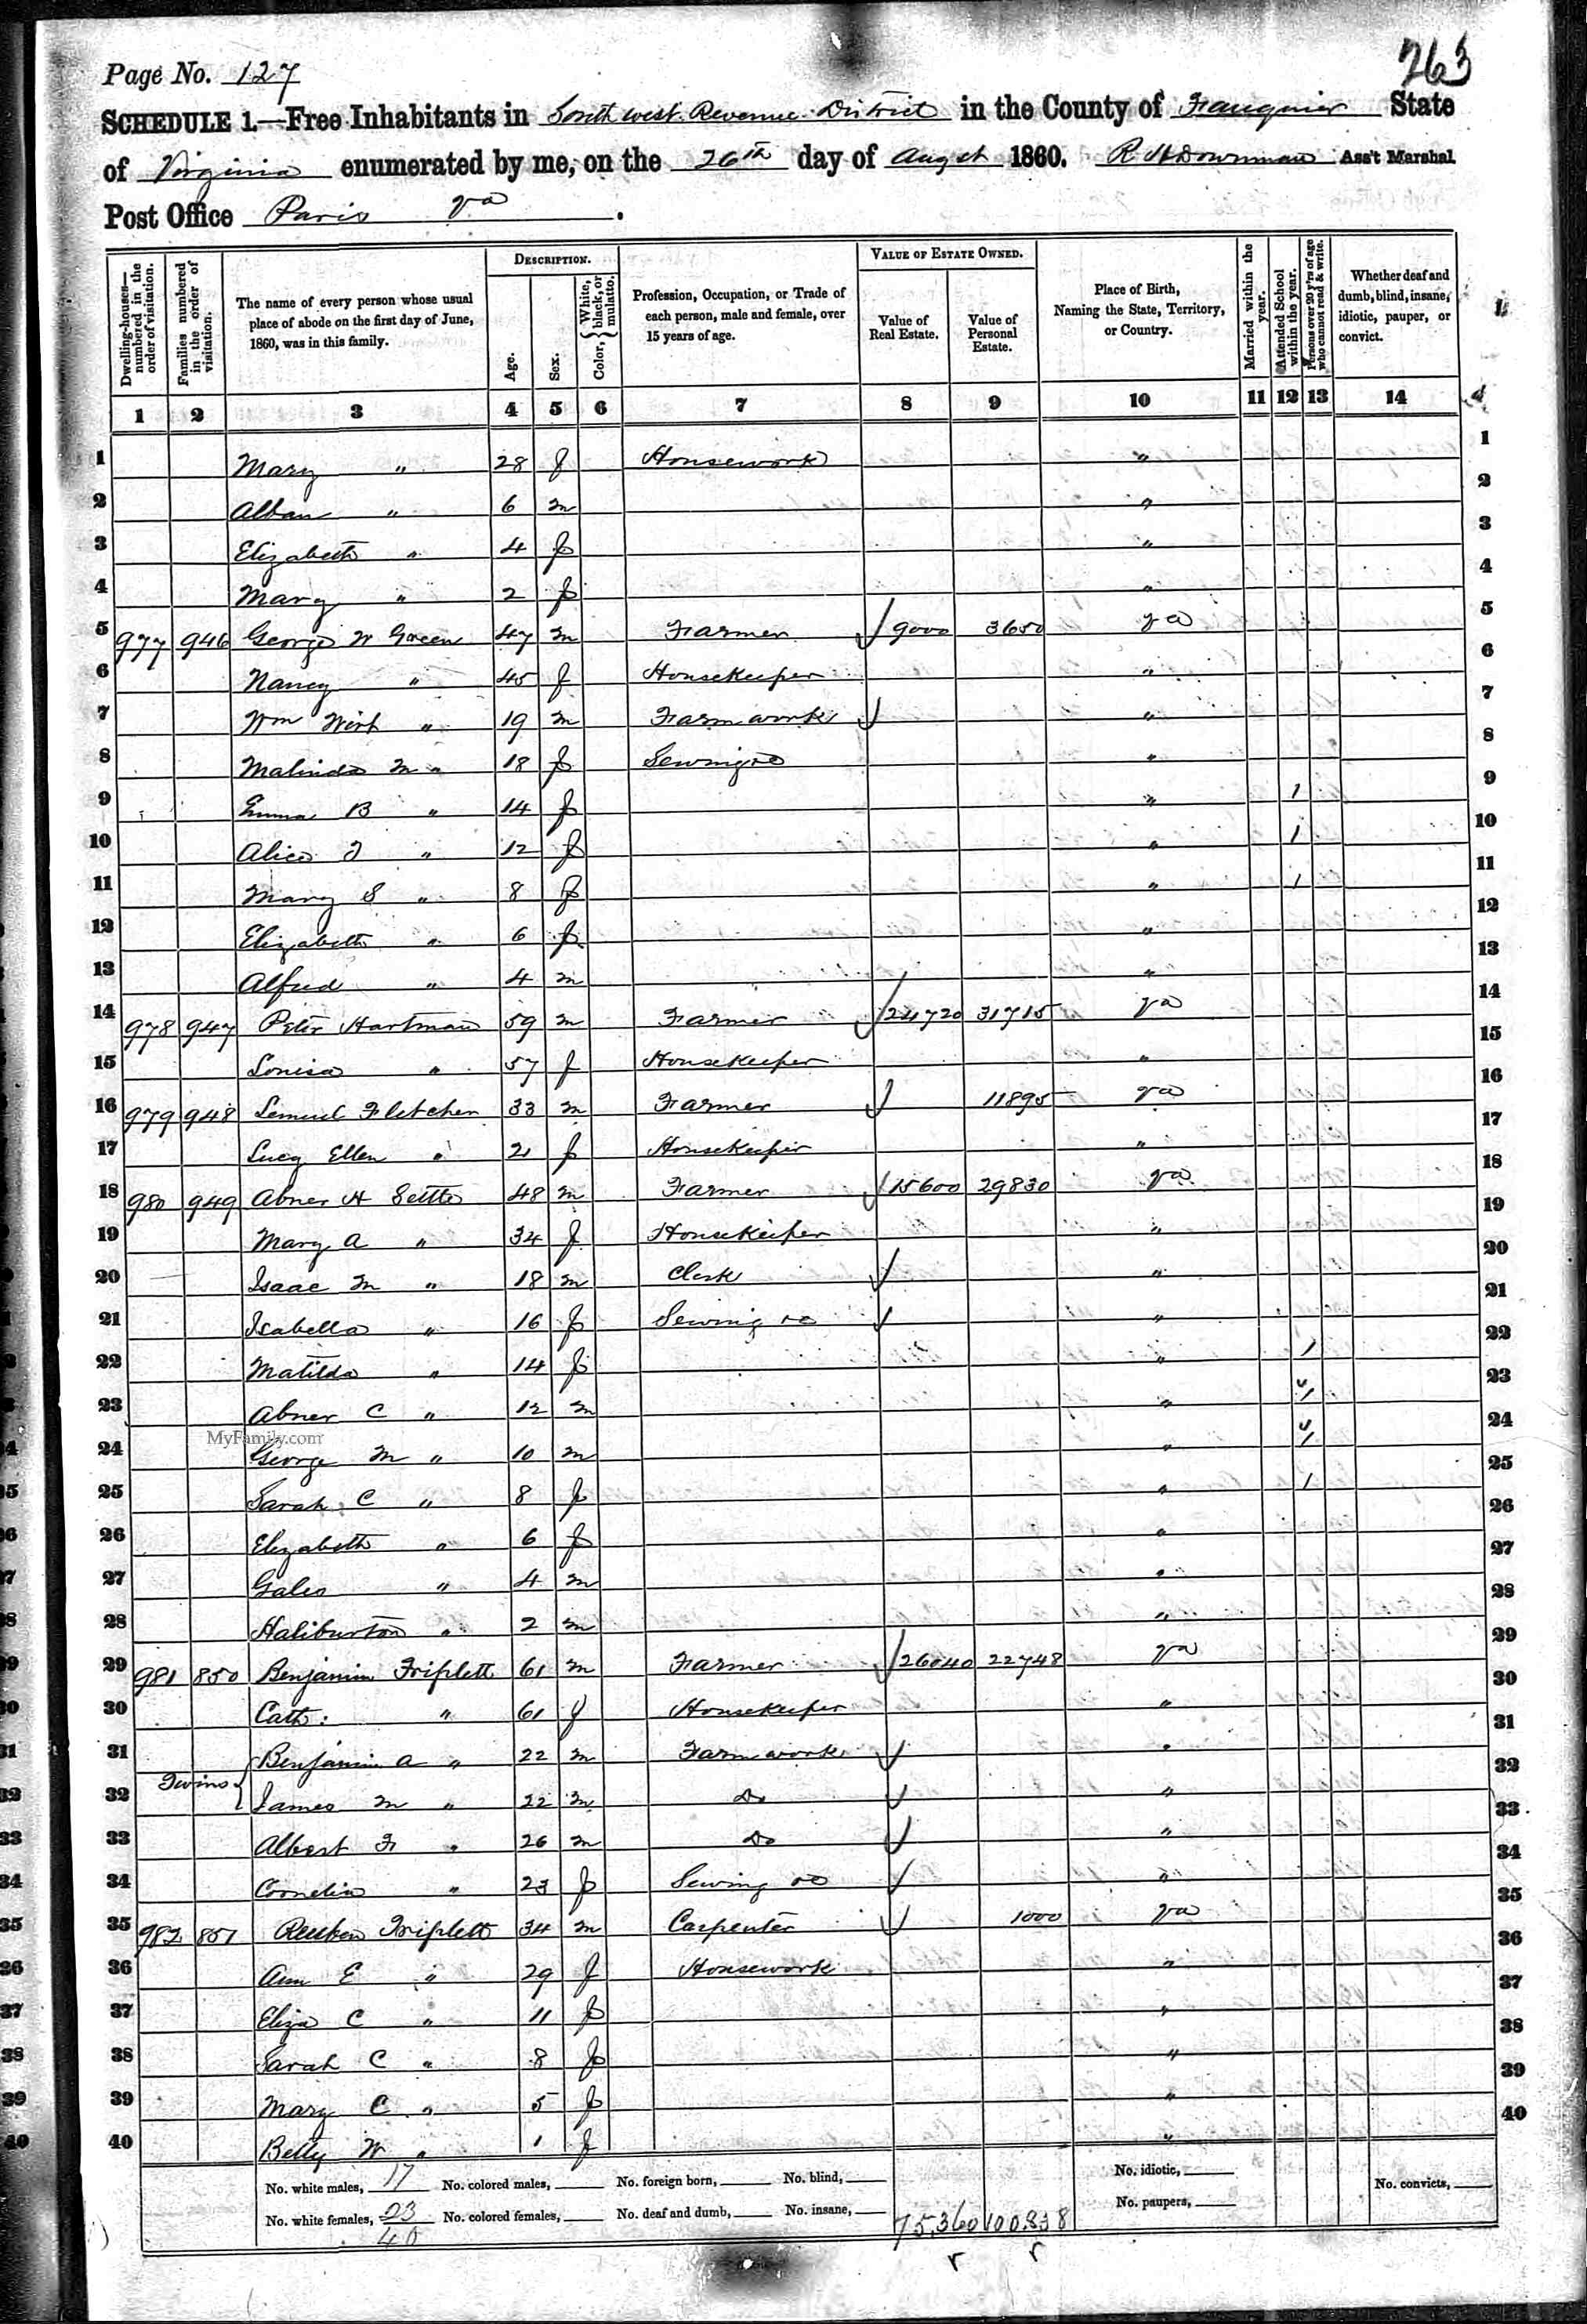 263
Page No. 127
SCHEDULE 1.—Free Inhabitants in South west Revenue District in the County of Fauquier State
of Virginia enumerated by me, on the 26th day of Augst 1860. R H Downman Ass't Marshal
Post Office Paris Va.
Dwelling-houses—numbered in the order of visitation.
Families numbered in the order of visitation.
The name of every person whose usual place of abode on the first day of June, 1860, was in this family.
DESCRIPTION.
Age.
Sex.
Color, { White, black, or mulatto.
Profession, Occupation, or Trade of each person, male and female, over 15 years of age.
VALUE OF ESTATE OWNED.
Value of Real Estate.
Value of Personal Estate.
Place of Birth, Naming the State, Territory, or Country.
Married within the year.
Attended School within the year.
Persons over 20 y'rs of age who cannot read & write.
Whether deaf and dumb, blind, insane, idiotic, pauper, or convict.
1 2 3 4 5 6 7 8 9 10 11 12 13 14
1 Mary " 28 f Housework " 1
2 Alban " 6 m " 2
3 Elizabeth " 4 f " 3
4 Mary " 2 f " 4
5 977 946 George W Green 47 m Farmer 9000 3650 Va 5
6 Nancy " 45 f Housekeeper " 6
7 Wm Wirt " 19 m Farm work " 7
8 Malinda M " 18 f Sewing &c " 8
9 Emma B " 14 f " 1 9
10 Alice J " 12 f " 1 10
11 Mary S " 8 f " 1 11
12 Elizabeth " 6 f " 12
13 Alfred " 4 m " 13
14 978 947 Peter Hartman 59 m Farmer 24720 31715 Va 14
15 Louisa " 57 f Housekeeper " 15
16 979 948 Lemuel Fletcher 33 m Farmer 11895 Va 16
17 Lucy Ellen " 21 f Housekeeper " 17
18 980 949 Abner H Settle 48 m Farmer 15600 29830 Va 18
19 Mary A " 34 f Housekeeper " 19
20 Isaac M " 18 m Clerk " 20
21 Isabella " 16 f Sewing &c " 21
22 Matilda " 14 f " 1 22
23 Abner C " 12 m " 1 23
MyFamily.com
24 George M " 10 m " 1 24
25 Sarah C " 8 f " 1 25
26 Elizabeth " 6 f " 26
27 Gales " 4 m " 27
28 Haliburton " 2 m " 28
29 981 850 Benjamin Triplett 61 m Farmer 26040 22748 Va 29
30 Cath: " 61 f Housekeeper " 30
31 Benjamin A " 22 m Farm work " 31
Twins {
32 James M " 22 m Do " 32
33 Albert F " 26 m Do " 33
34 Cornelia " 23 f Sewing &c " 34
35 982 851 Reuben Triplett 34 m Carpenter 1000 Va 35
36 Ann E " 29 f Housework " 36
37 Eliza C " 11 f " 37
38 Sarah C " 8 f " 38
39 Mary C " 5 f " 39
40 Betty W " 1 f " 40
No. white males, 17 No. colored males, No. foreign born, No. blind, No. idiotic, No. convicts,
No. white females, 23 No. colored females, No. deaf and dumb, No. insane, 75,360 100.838 No. paupers,
40